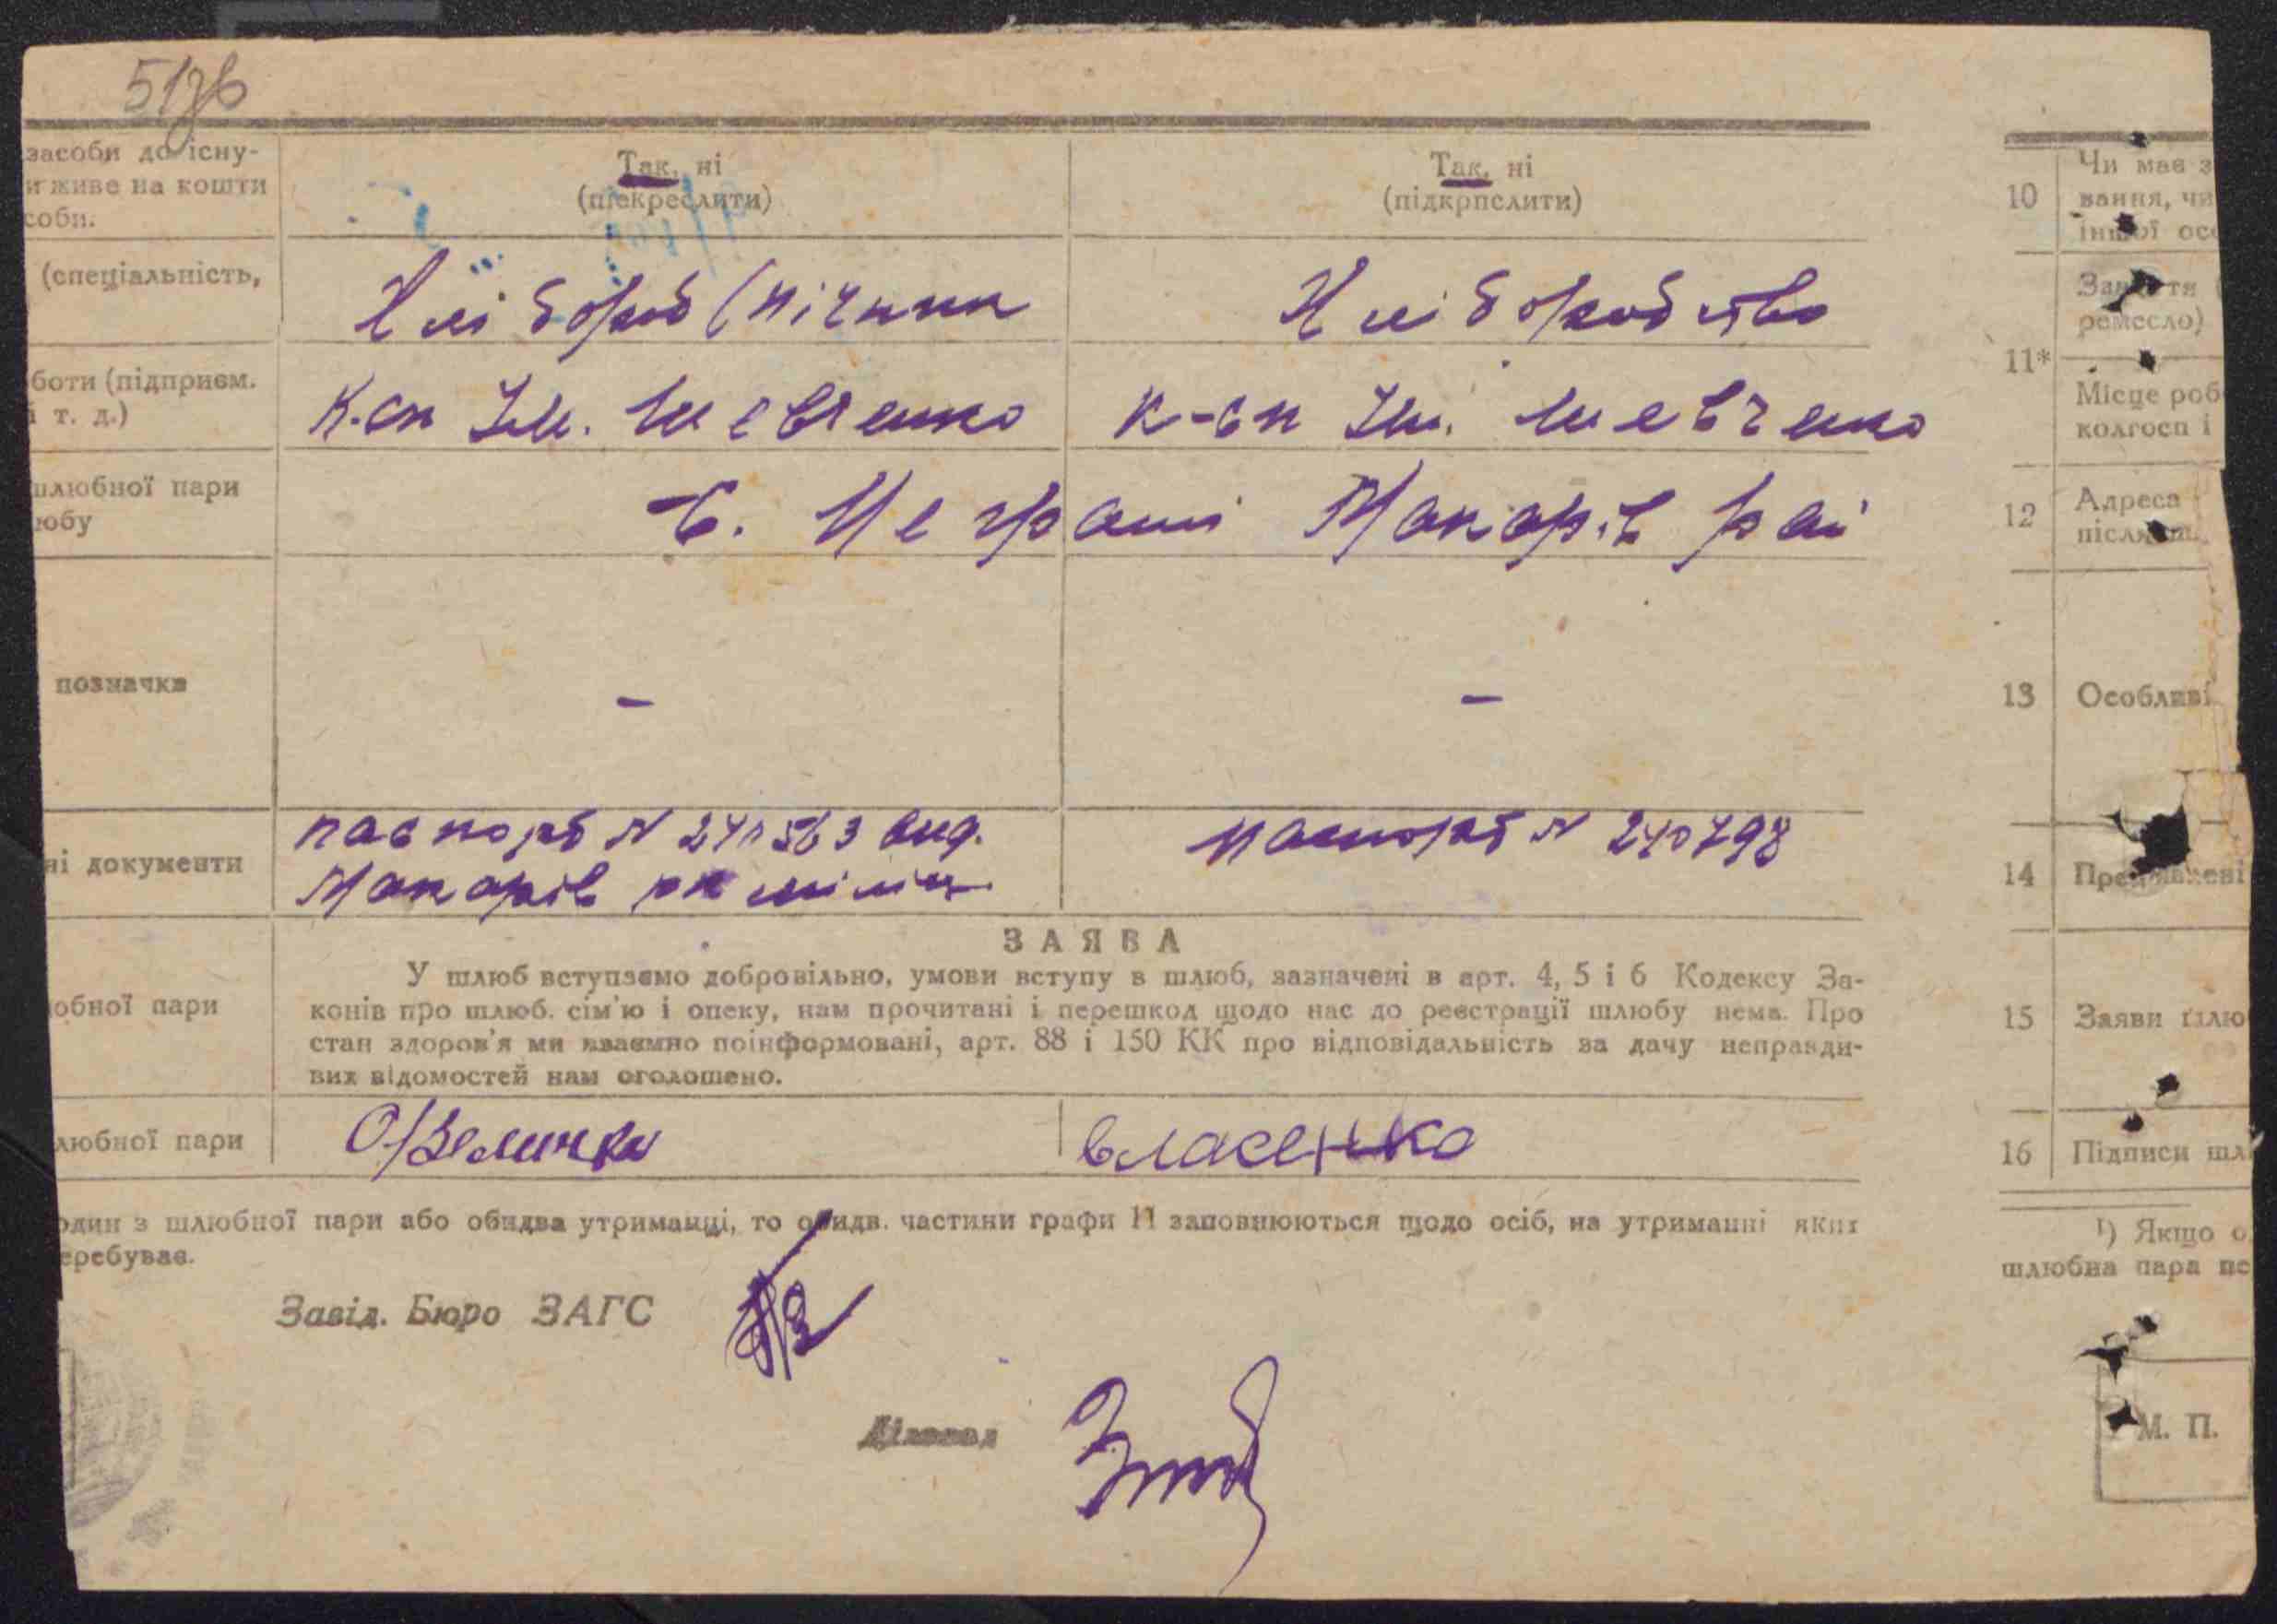 засоби до існу-
и живе на кошти
соби.
Так, ні
(підкреслити)
Так, ні
(підкрпслити)
(спеціальність,
Хліборобство
боти (підприєм.
і т. д.)
К-сп Ім. Шевченко
к-сп Ім. Шевченко
шлюбної пари
юбу
с. Мотрани Макарів рай
позначки
–
–
ні документи
паспорт N 240563 вид.
Макарів рк міліц.
паспорт N 240798
ЗАЯВА
обної пари
У шлюб вступаємо добровільно, умови вступу в шлюб, зазначені в арт. 4, 5 і 6 Кодексу За-
конів про шлюб. сім'ю і опеку, нам прочитані і перешкод щодо нас до реєстрації шлюбу нема. Про
стан здоров'я ми взаємно поінформовані, арт. 88 і 150 КК про відповідальність за дачу неправди-
вих відомостей нам оголошено.
любної пари
Величко
Власенко
один з шлюбної пари або обидва утриманці, то обидв. частини графи 11 заповнюються щодо осіб, на утриманні яких
еребуває.
Завід. Бюро ЗАГС
Діловод
10
Чи має з
вання, чи
іншої осо
11*
Заняття
ремесло)
Місце роб
колгосп і
12
Адреса
після
13
Особливі
14
Пред'явлені
15
Заяви шлю
16
Підписи шл
¹) Якщо о
шлюбна пара пе
М. П.